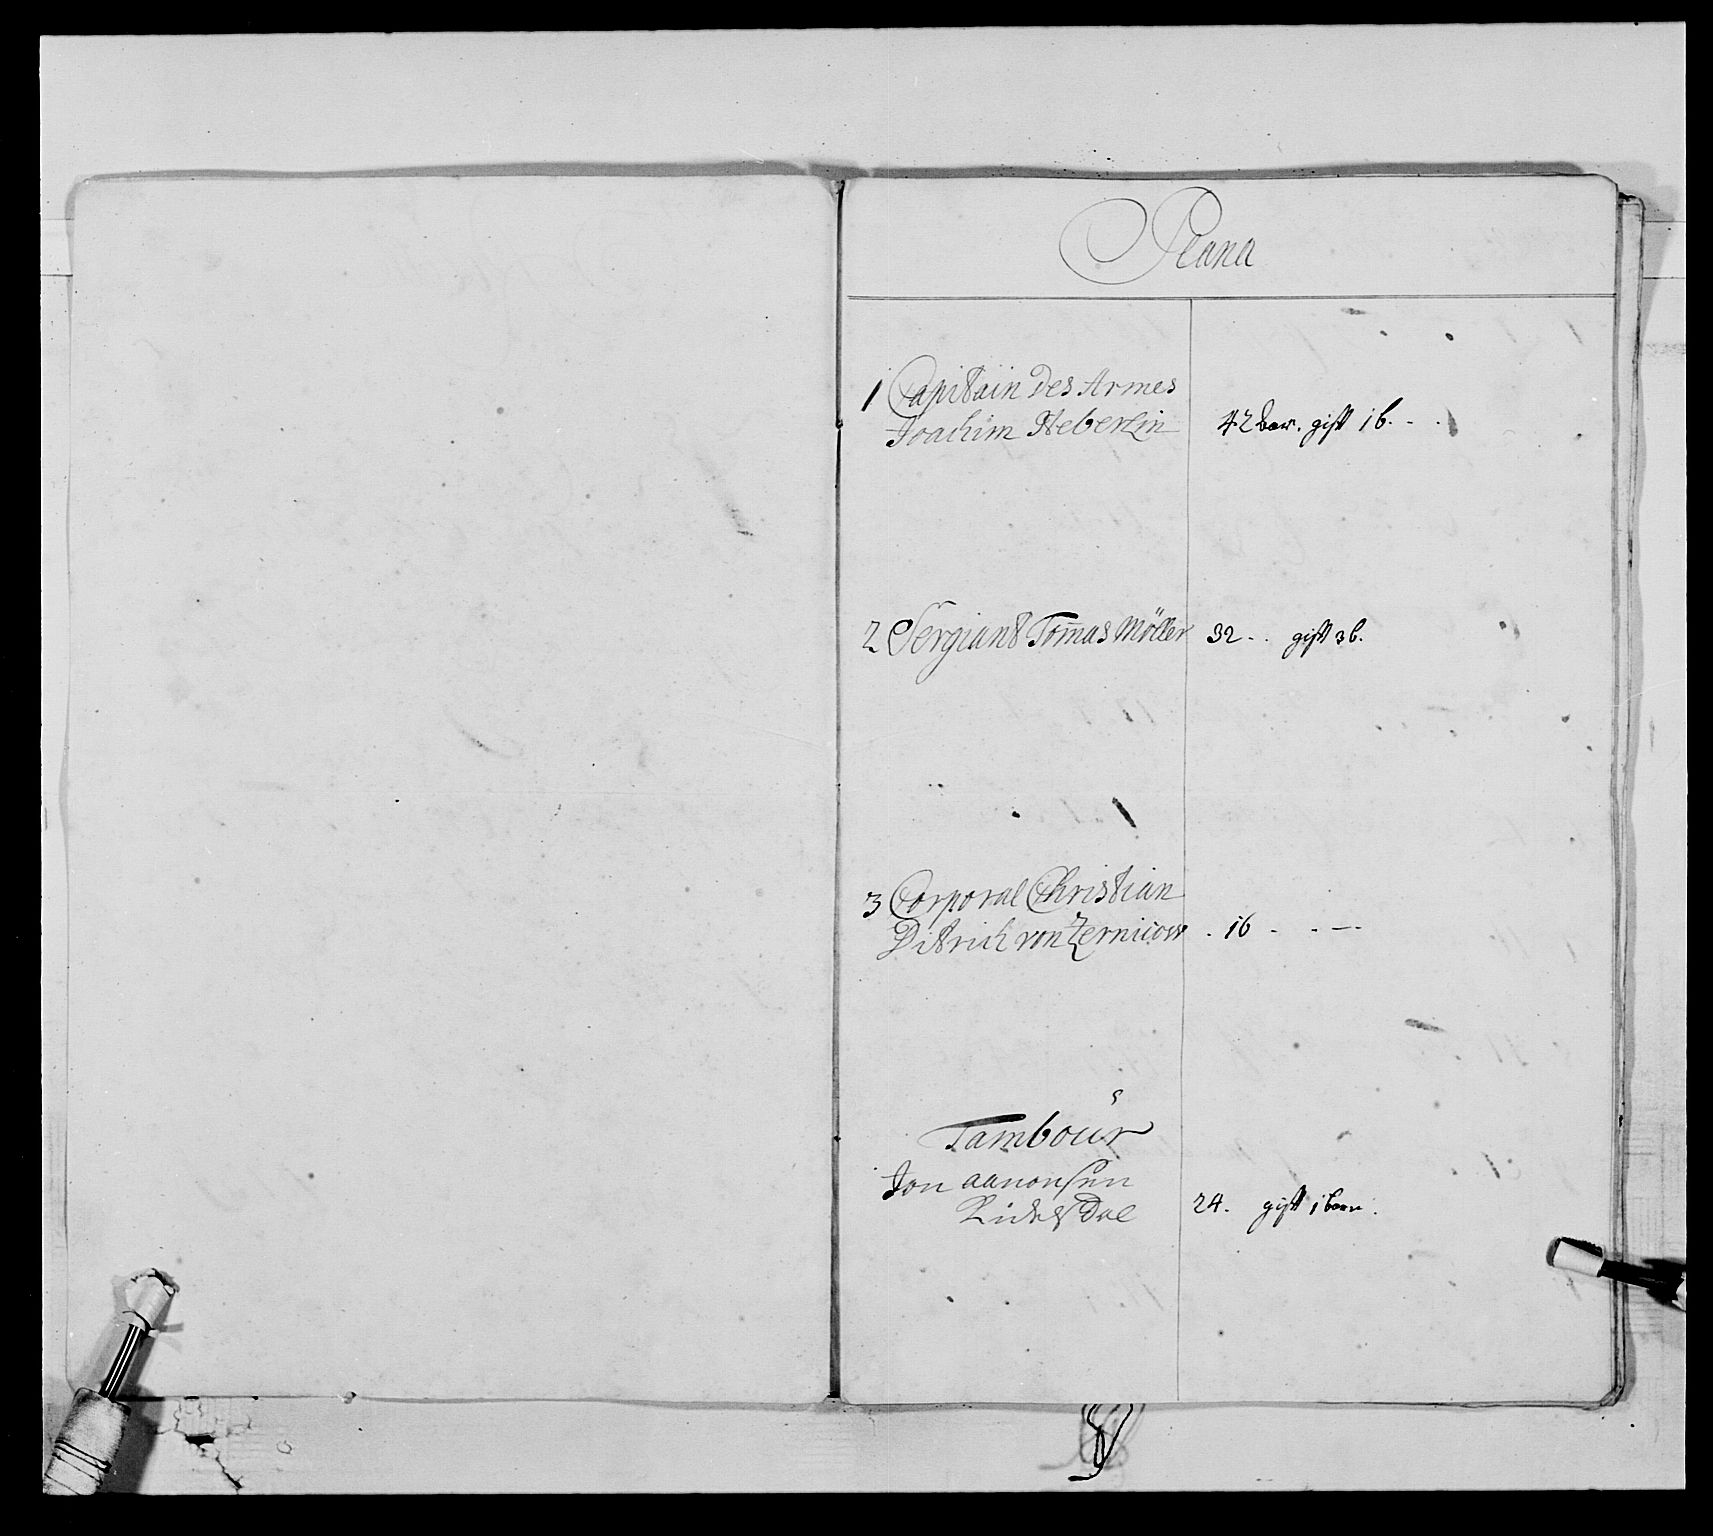 Plana
1 Capitain Des Armes
Joachim Heberlin 42 bar. gift 1 b.
2 Sergiant Tom̄as Möller 32 - . gift 3 b.
3 Corporal Christian
Ditrich von Zernicow . 16 - . -
Tambour
Jon aanonsen
24. gift 1 barn.